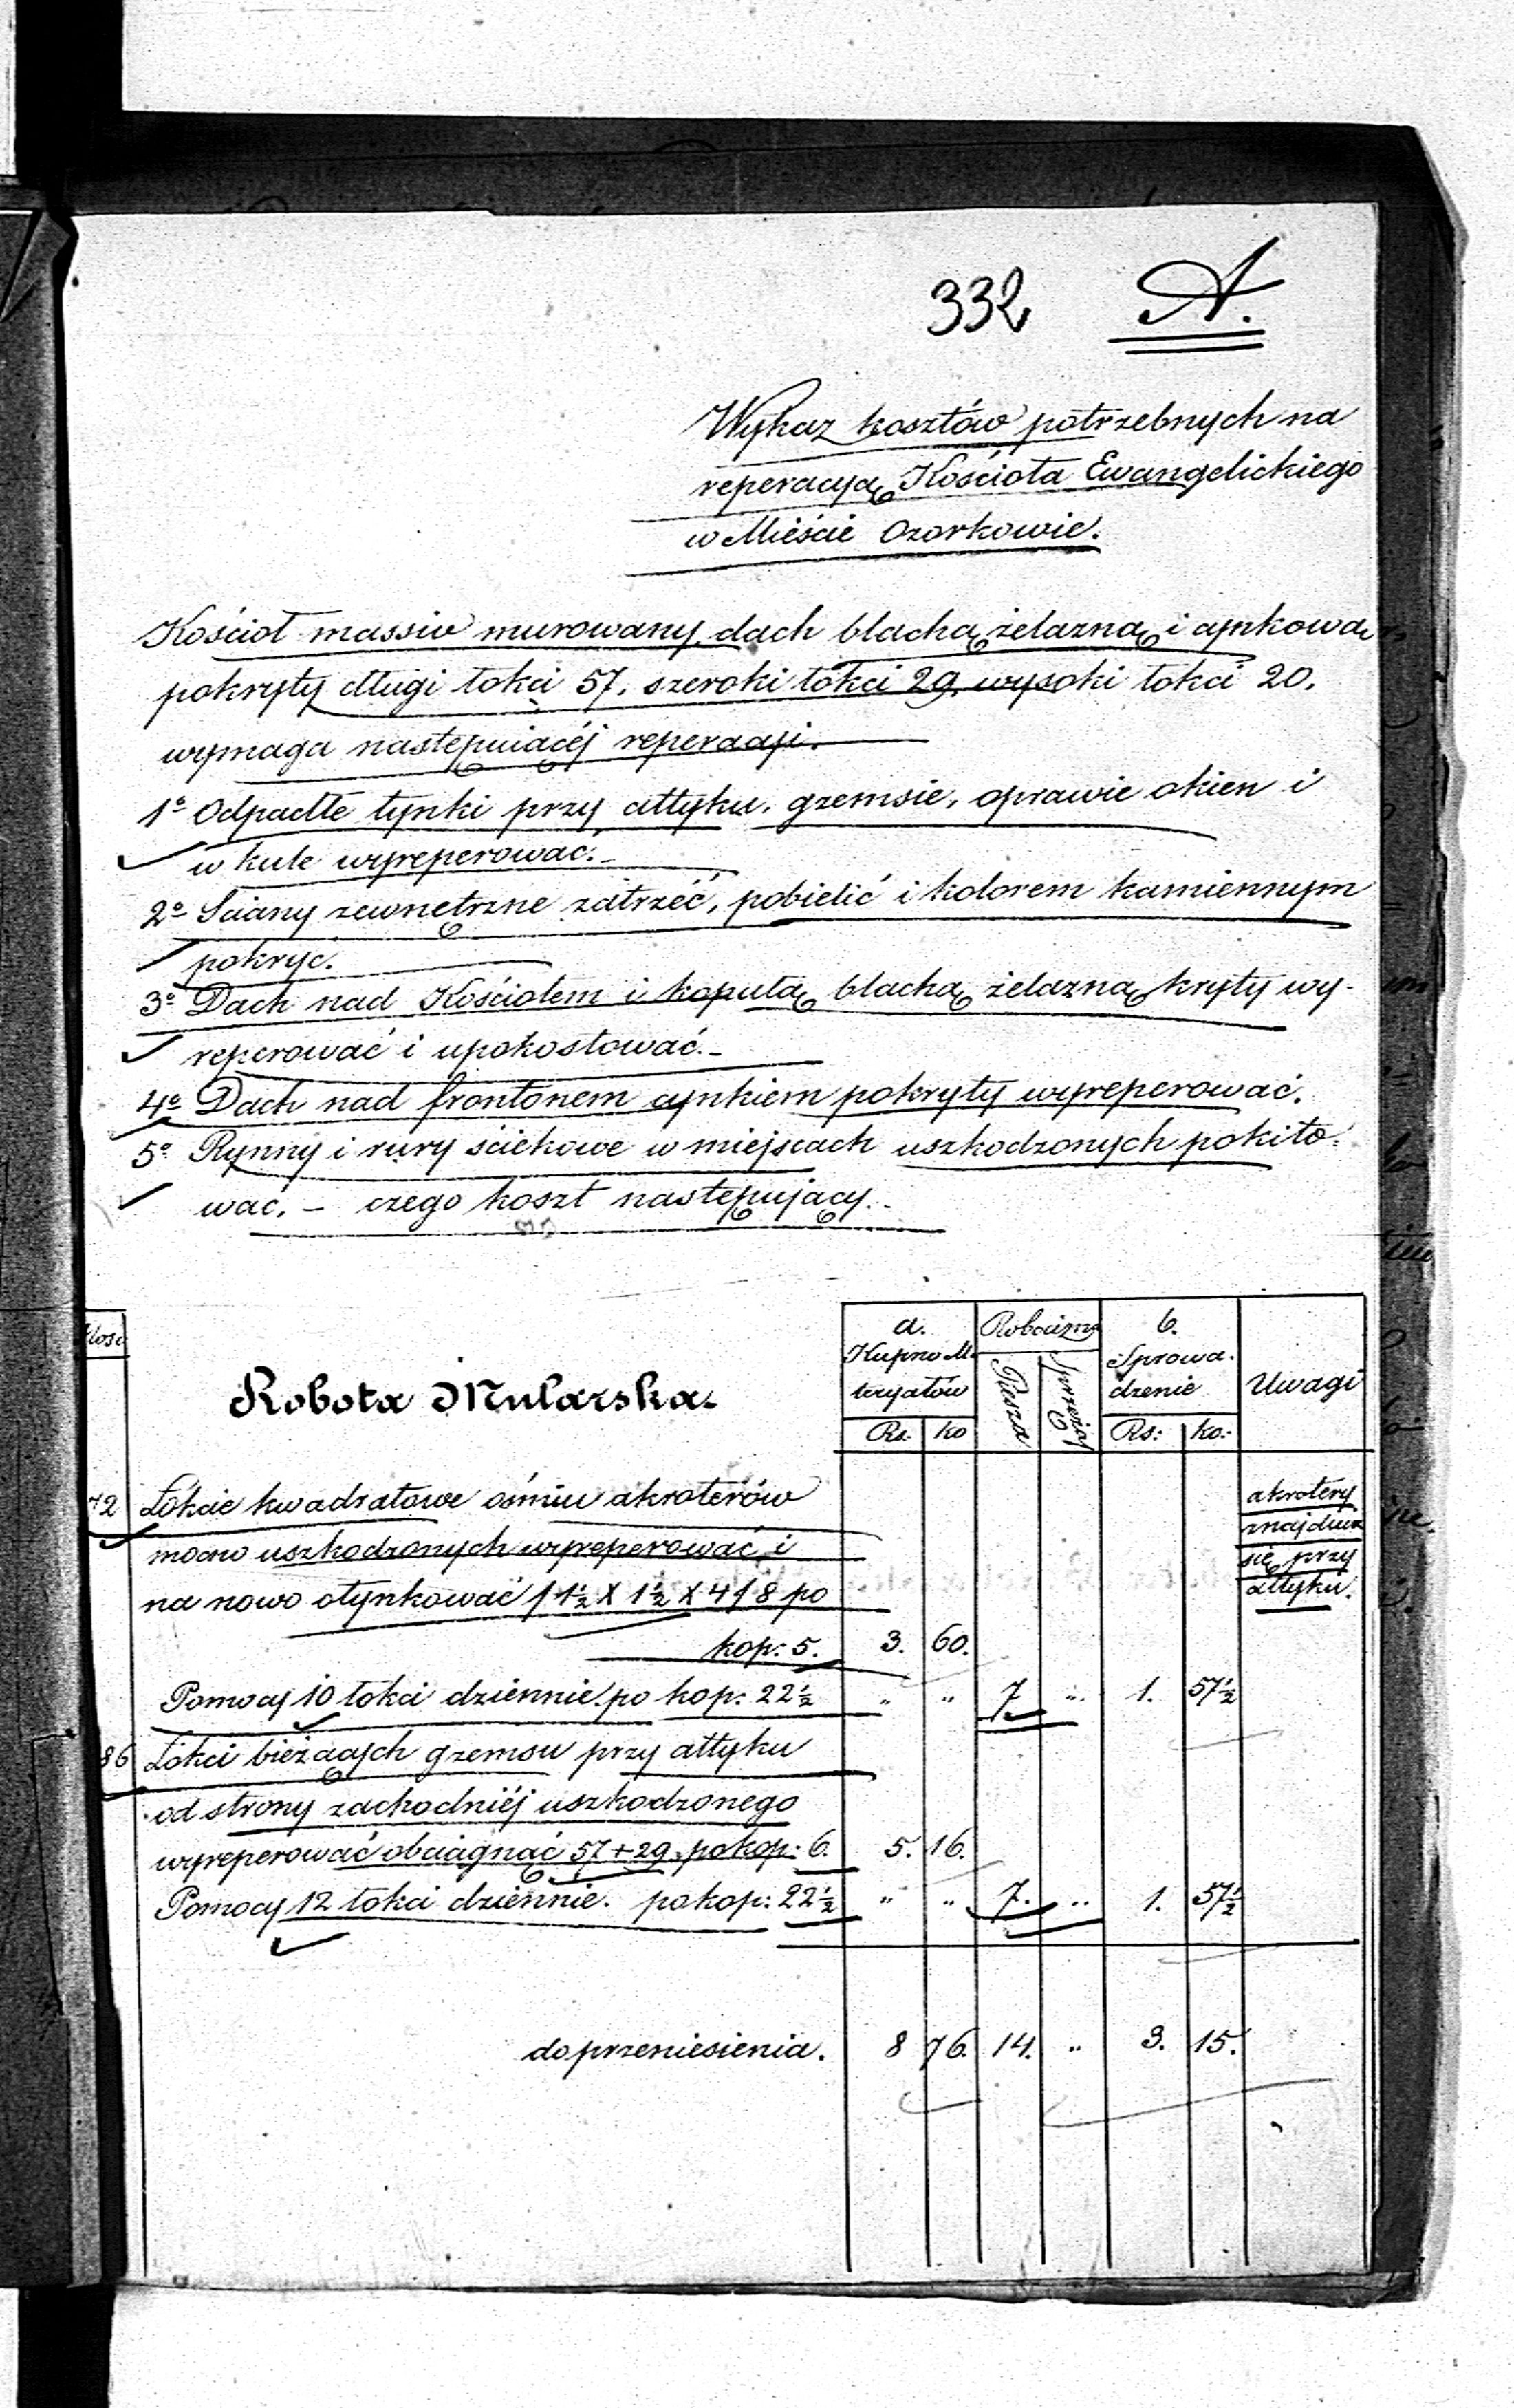 332 A.
Wykaz kosztów potrzebnych na
reperacyą Kościoła Ewangelickiego
w Mieście Ozorkowie.
Kościoł massiw murowany, dach blachą żelazną i cynkową
pokryty długi łokci 57, szeroki łokci 29, wysoki łokci 20.
wymaga następuiącéj reperacyi.
1o Odpadłe tynki przy attyku, gzemsie, oprawie okien i
w kule wyreperować.
2o Sciany zewnętrzne zatrzéć, pobielić i kolorem kamiennym
pokryć.
3o Dach nad Kościołem i kopułą blachą żelazną kryty wy-
reperować i upokostować.
4o Dach nad frontonem cynkiem pokryty wyreperować.
5o Rynny i rury sciekowe w miejscach uszkodzonych pokito-
wać. – czego koszt następujący.
Ilosć
Robota Mularska
a.
Kupno Ma-
teryałów
Rs. ko
Robocizna
Piesza
Sprzężaj
b.
Sprowa-
dzenie
Rs: ko:
Uwagi
72 Łokcie kwadratowe ośmiu akroterów
mocno uszkodzonych wyreperować i
na nowo otynkować / 1½ X 1½ X 4 / 8 po
kop: 5. 3. 60.
akrotery
znajduią
się przy
attyku.
Pomocy 10 łokci dziennie po kop: 22½ " " 7 " 1. 57½
86 Łokci bieżących gzemsu przy attyku
od strony zachodniéj uszkodzonego
wyreperować obciągnąć 57+29. po kop: 6. 5. 16.
Pomocy 12 łokci dziennie. po kop: 22½ " " 7. " 1. 57½
do przeniesienia. 8 76. 14. " 3. 15.